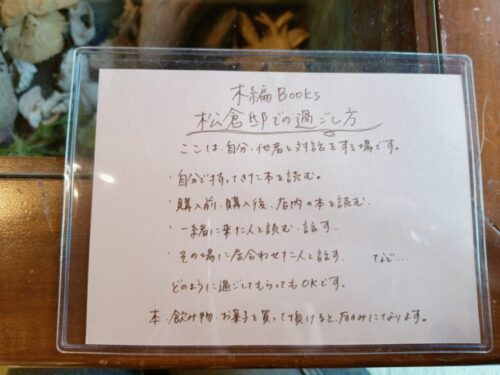 木編Books
松倉邸での過ごし方
ここは、自分、他者と対話をする場です。
・自分で持ってきた本を読む。
・購入前、購入後、店内の本を読む。
・一緒に来た人と読む、話す。
・その場に居合わせた人と話す。 など…
どのように過ごしてもらってもOKです。
本、飲み物、お菓子を買って頂けると、励みになります。